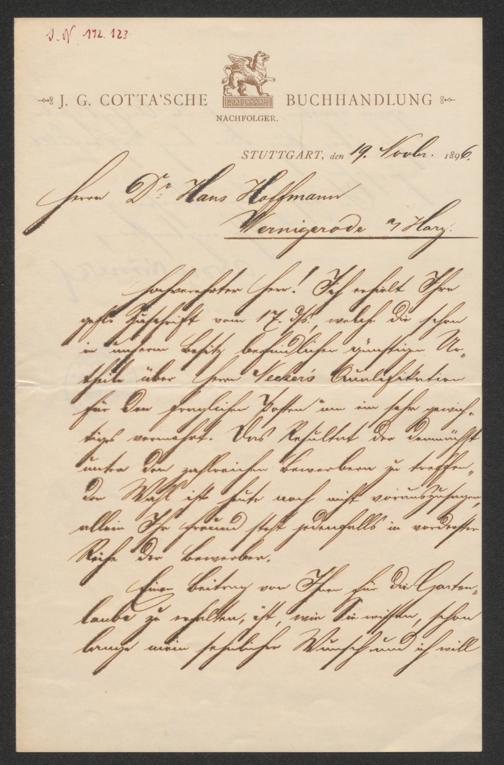 J. N. 112.123
J. G. COTTA'SCHE BUCHHANDLUNG
NACHFOLGER.
STUTTGART, den 19. Novbr. 1896.
Herrn Dr. Hans Hoffmann
Wernigerode a/Harz.
Hochverehrter Herr! Ich erhielt Ihre
gefl. Zuschrift vom 17. ds., welche die schon
in unserm Besitz befindlichen günstigen Ur-
theile über Herrn Necker's Qualifikation
für den fraglichen Posten um ein sehr gewich-
tiges vermehrt. Das Resultat der demnächst
unter den zahlreichen Bewerbern zu treffen-
den Wahl ist heute noch nicht vorauszusagen,
allein Ihr Freund steht jedenfalls in vorderster
Reihe der Bewerber.
Einen Beitrag von Ihnen für die Garten-
laube zu erhalten, ist, wie Sie wissen, schon
lange mein sehnlicher Wunsch und ich will